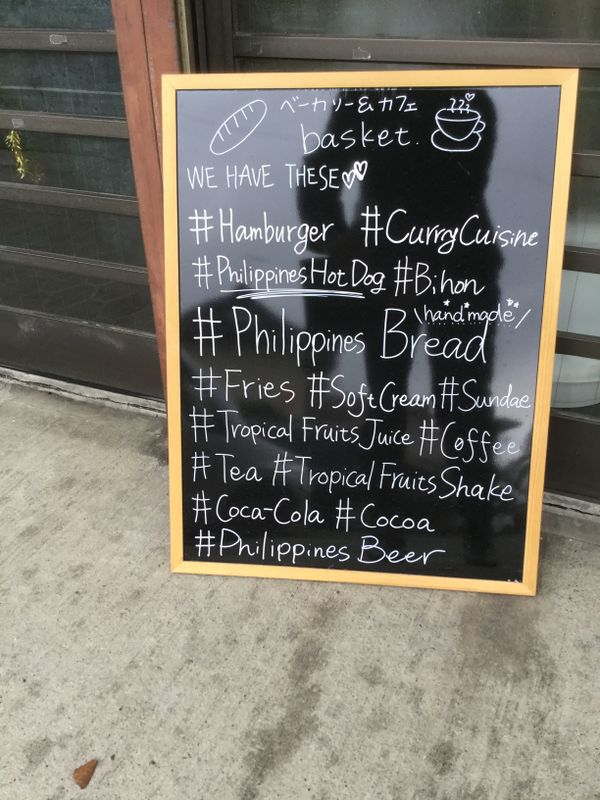 ベーカリー&カフェ
basket.
WE HAVE THESE
#Hamburger #CurryCuisine
#PhilippinesHotDog #Bihon
handmade
#Philippines Bread
#Fries #SoftCream #Sundae
#Tropical Fruits Juice #Coffee
#Tea #Tropical Fruits Shake
#Coca-Cola #Cocoa
#Philippines Beer